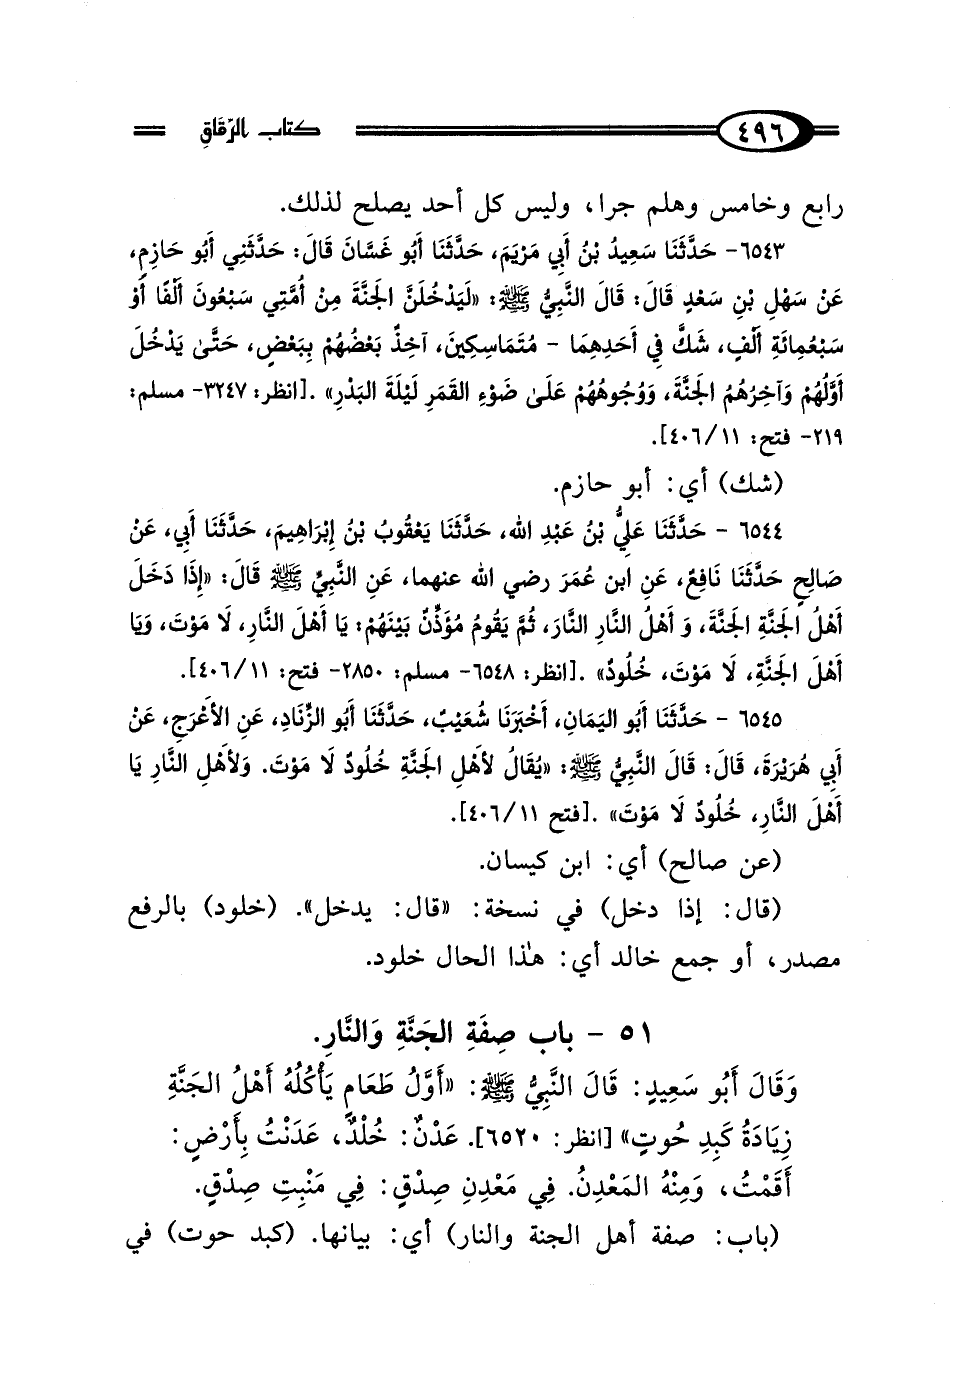 ٤٩٦ كتاب الرِّقَاقِ
رابع وخامس وهلم جرا، وليس كل أحد يصلح لذلك.
٦٥٤٣- حَدَّثَنَا سَعِيدُ بْنُ أَبِي مَرْيَمَ، حَدَّثَنَا أَبُو غَسَّانَ قَالَ: حَدَّثَنِي أَبُو حَازِمٍ،
عَنْ سَهْلِ بْنِ سَعْدٍ قَالَ: قَالَ النَّبِيُّ ﷺ: «لَيَدْخُلَنَّ الجَنَّةَ مِنْ أُمَّتِي سَبْعُونَ أَلْفًا أَوْ
سَبْعُمِائَةِ أَلْفٍ، شَكَّ فِي أَحَدِهِمَا - مُتَمَاسِكِينَ، آخِذٌ بَعْضُهُمْ بِبَعْضٍ، حَتَّىٰ يَدْخُلَ
أَوَّلُهُمْ وَآخِرُهُمُ الجَنَّةَ، وَوُجُوهُهُمْ عَلَىٰ ضَوْءِ القَمَرِ لَيْلَةَ البَدْرِ» .[انظر: ٣٢٤٧- مسلم:
٢١٩- فتح: ٤٠٦/١١].
(شك) أي: أبو حازم.
٦٥٤٤ - حَدَّثَنَا عَلِيُّ بْنُ عَبْدِ الله، حَدَّثَنَا يَعْقُوبُ بْنُ إِبْرَاهِيمَ، حَدَّثَنَا أَبِي، عَنْ
صَالِحٍ حَدَّثَنَا نَافِعٌ، عَنِ ابن عُمَرَ رضي الله عنهما، عَنِ النَّبِيِّ ﷺ قَالَ: «إِذَا دَخَلَ
أَهْلُ الجَنَّةِ الجَنَّةَ، وَ أَهْلُ النَّارِ النَّارَ، ثُمَّ يَقُومُ مُؤَذِّنٌ بَيْنَهُمْ: يَا أَهْلَ النَّارِ، لَا مَوْتَ، وَيَا
أَهْلَ الجَنَّةِ، لَا مَوْتَ، خُلُودٌ» .[انظر: ٦٥٤٨- مسلم: ٢٨٥٠- فتح: ٤٠٦/١١].
٦٥٤٥ - حَدَّثَنَا أَبُو اليَمَانِ، أَخْبَرَنَا شُعَيْبٌ، حَدَّثَنَا أَبُو الزِّنَادِ، عَنِ الأَعْرَجِ، عَنْ
أَبِي هُرَيْرَةَ، قَالَ: قَالَ النَّبِيُّ ﷺ: «يُقَالُ لأَهْلِ الجَنَّةِ خُلُودٌ لَا مَوْتَ. وَلأَهْلِ النَّارِ يَا
أَهْلَ النَّارِ، خُلُودٌ لَا مَوْتَ» .[فتح ٤٠٦/١١].
(عن صالح) أي: ابن كيسان.
(قال: إذا دخل) في نسخة: «قال: يدخل». (خلود) بالرفع
مصدر، أو جمع خالد أي: هذا الحال خلود.
٥١ - باب صِفَةِ الجَنَّةِ وَالنَّارِ.
وَقَالَ أَبُو سَعِيدٍ: قَالَ النَّبِيُّ ﷺ: «أَوَّلُ طَعَامٍ يَأْكُلُهُ أَهْلُ الجَنَّةِ
زِيَادَةُ كَبِدِ حُوتٍ» [انظر: ٦٥٢٠]. عَدْنٌ: خُلْدٌ، عَدَنْتُ بِأَرْضٍ:
أَقَمْتُ، وَمِنْهُ المَعْدِنُ. فِي مَعْدِنِ صِدْقٍ: فِي مَنْبِتِ صِدْقٍ.
(باب: صفة أهل الجنة والنار) أي: بيانها. (كبد حوت) في